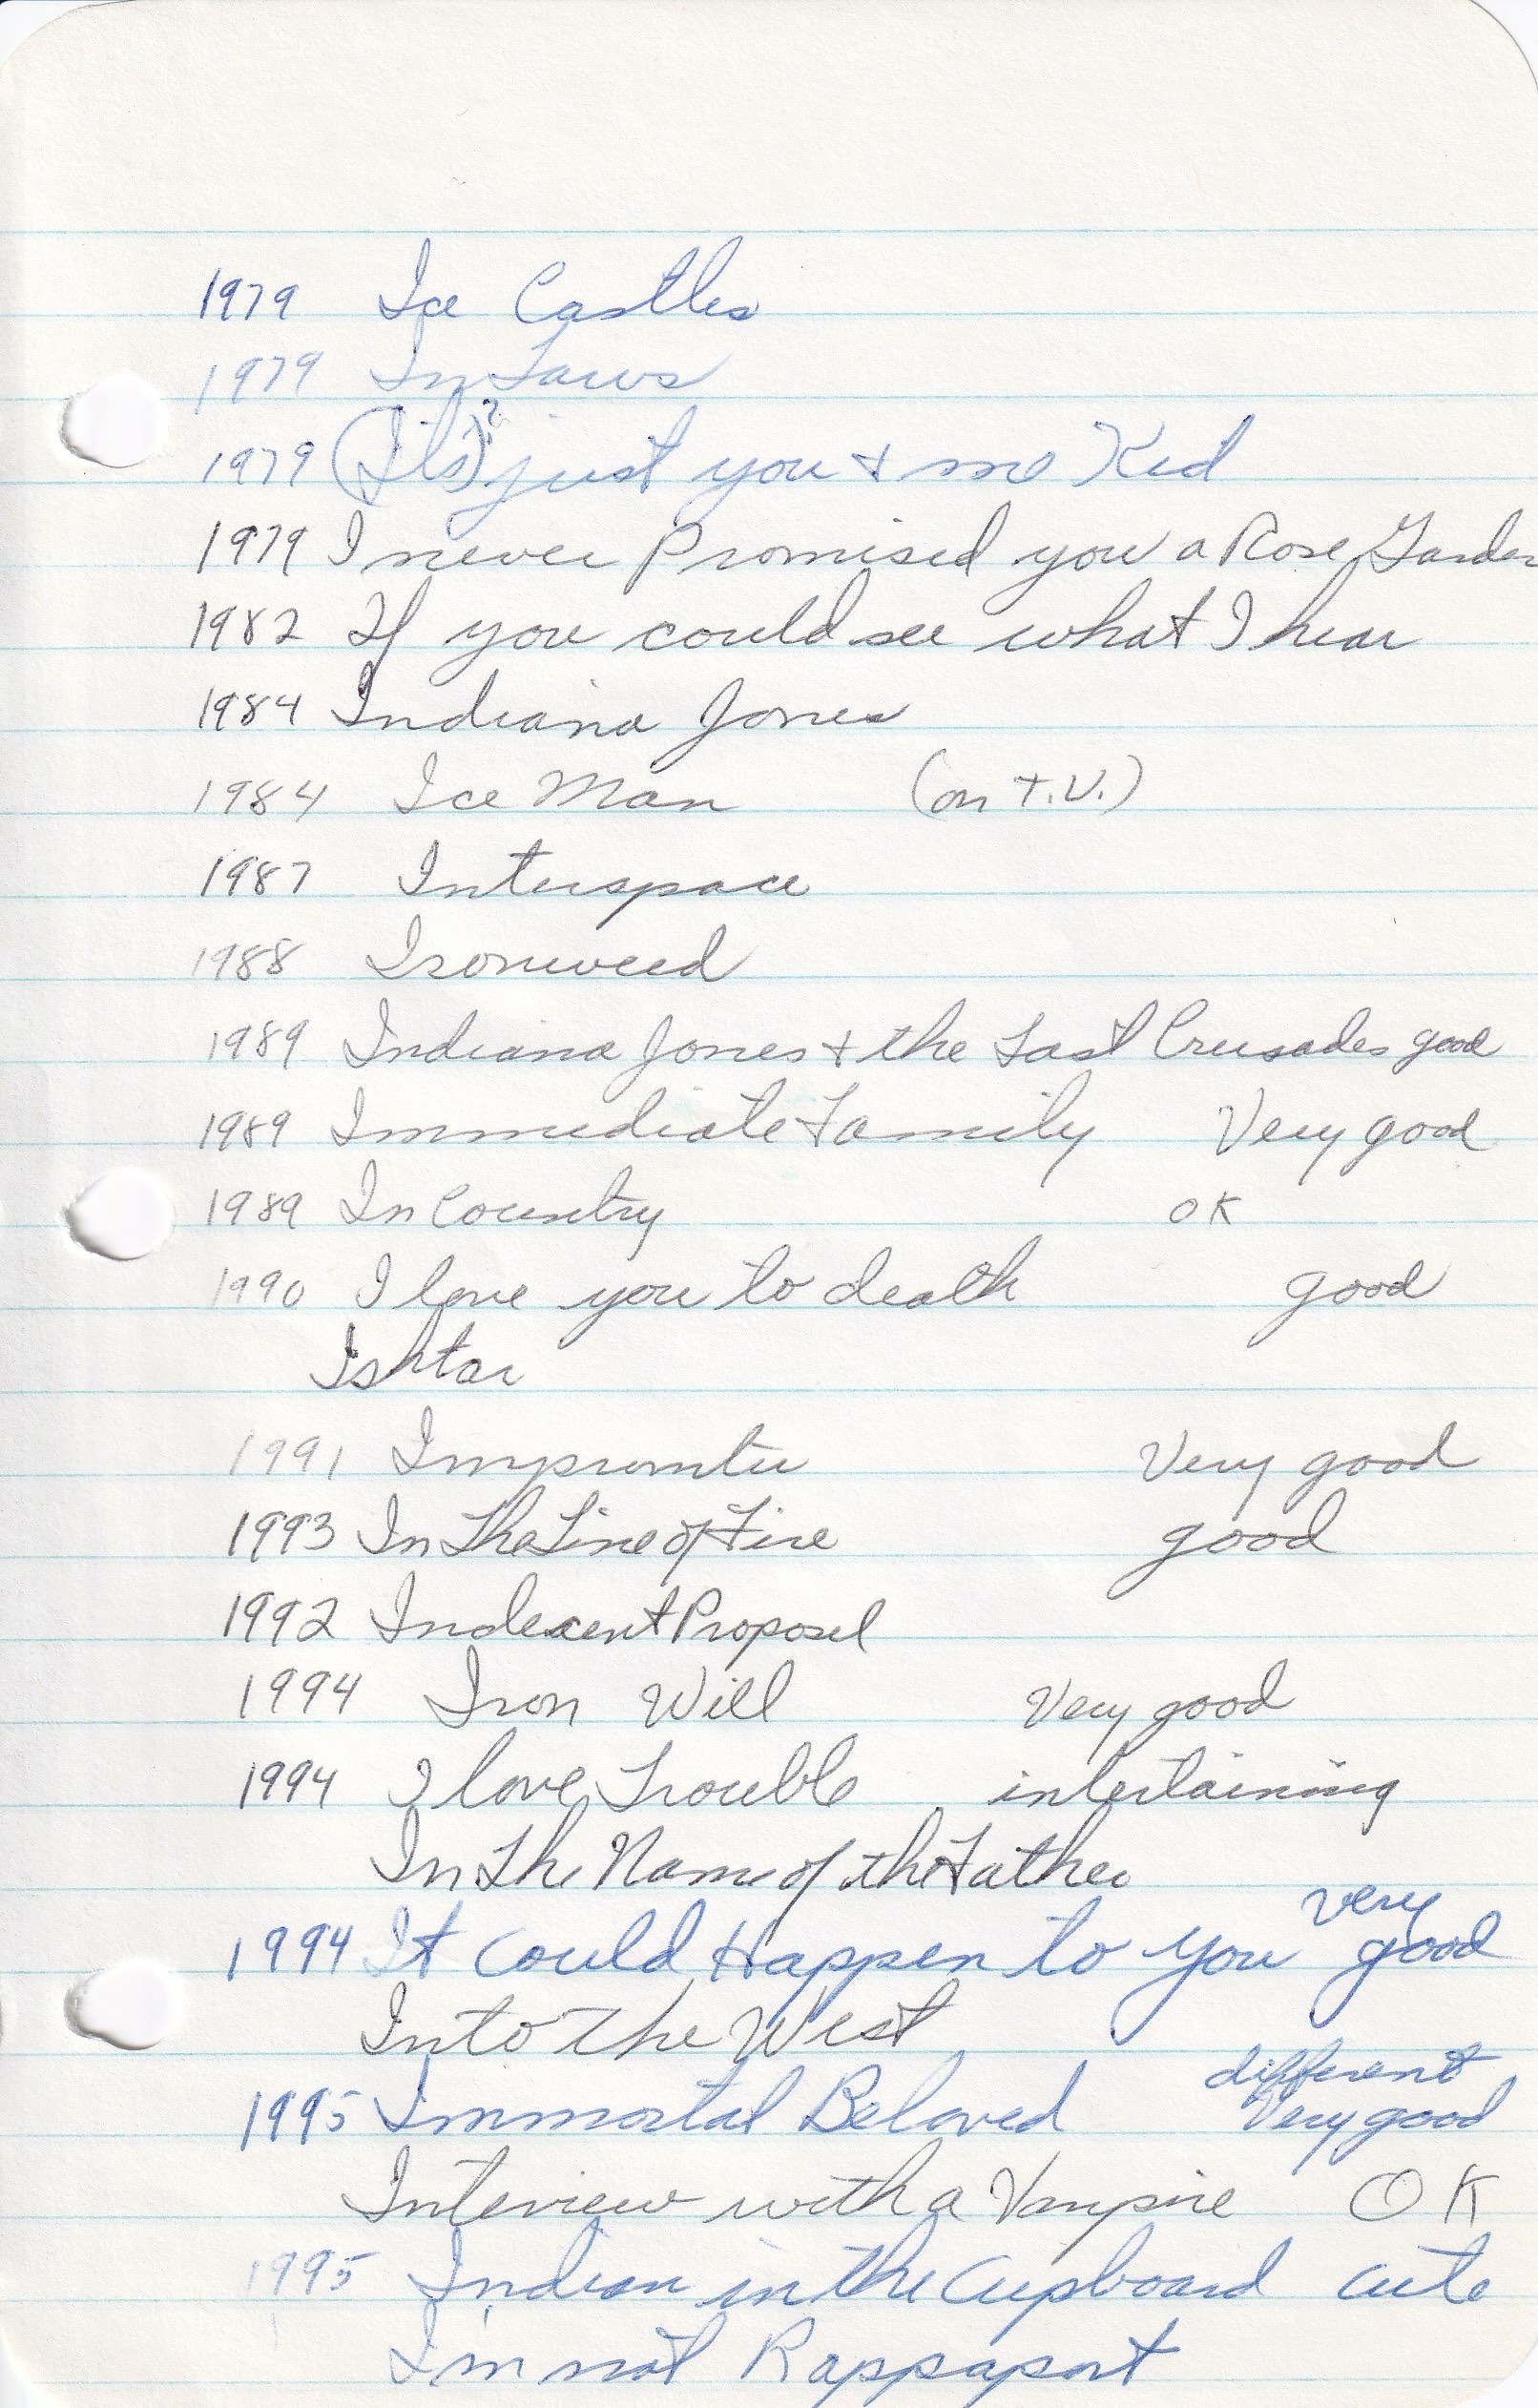 1979 Ice Castles
1979 In Laws
1979 (Its)? just you + me Kid
1979 I never Promised you a Rose Garden
1982 If you could see what I hear
1984 Indiana Jones
1984 Ice Man (on T.V.)
1987 Interspace
1988 Ironweed
1989 Indiana Jones + the Last Crusades good
1989 Immediate Family Very good
1989 In Country OK
1990 I love you to death good
Ishtar
1991 Impromtu Very good
1993 In The Line of Fire good
1992 Indecent Proposel
1994 Iron Will Very good
1994 I love Trouble intertaining
In The Name of the Father
1994 It Could Happen to you very good
Into the West
1995 Immortal Beloved different Very good
Interview with a Vampire OK
1995 Indian in the Cupboard cute
I'm not Rappaport